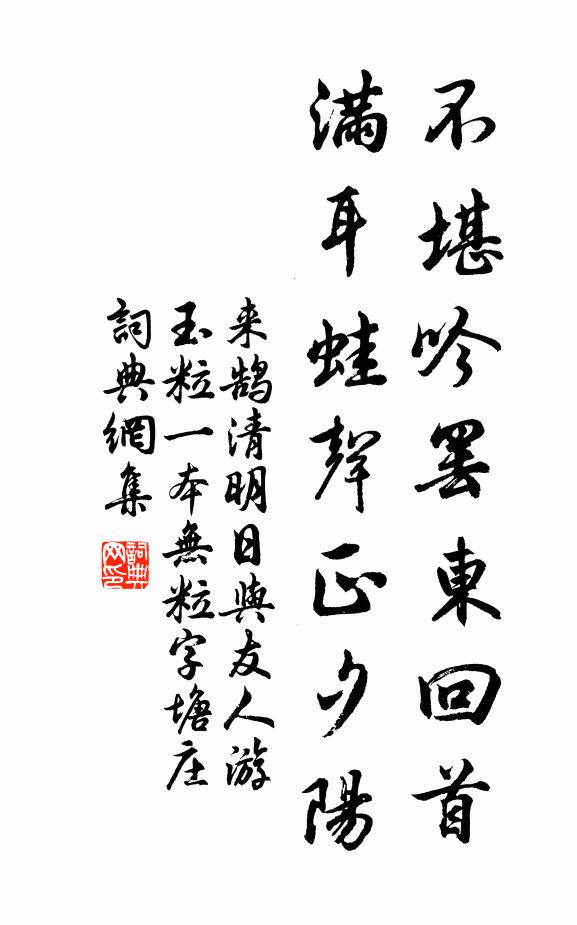 不堪吟罷東回首
滿耳蛙聲正夕陽
来鹄清明日與友人游
玉粒一本無粒字塘庄
詞典網集
詞典網印